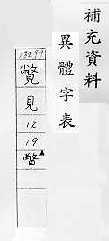 補充資料
異體字表
覽
見
12
19